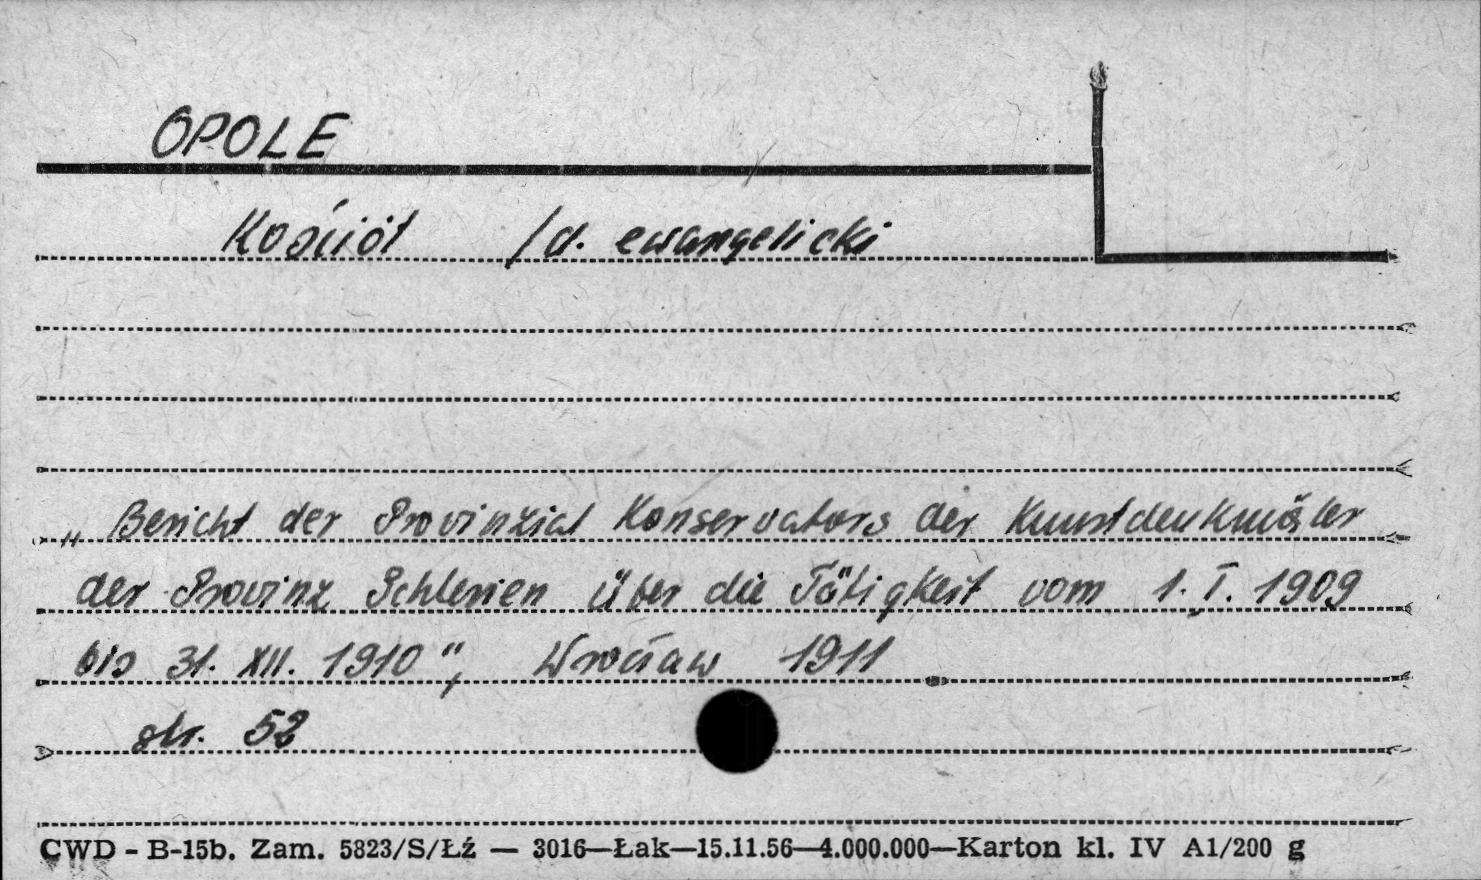 OPOLE
Kościół /d. ewangelicki
„Bericht der Provinzial Konservators der Kunstdenkmäler
der Provinz Schlesien über die Tätigkeit vom 1. I. 1909
bis 31. XII. 1910", Wrocław 1911
str. 52
CWD - B-15b. Zam. 5823/S/Łź — 3016—Łak—15.11.56—4.000.000—Karton kl. IV A1/200 g